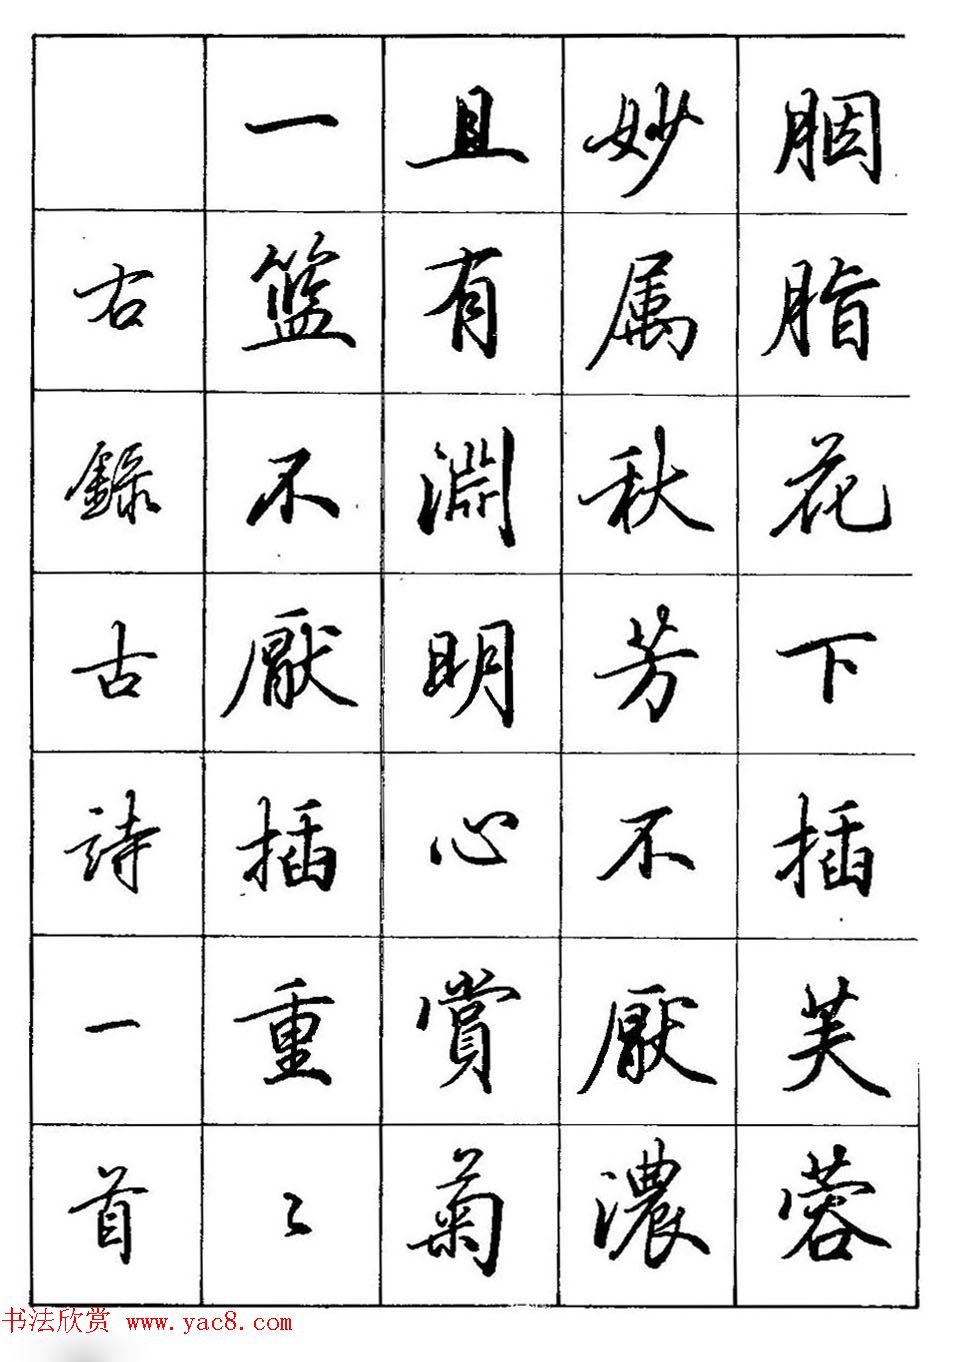 胭脂花下插芙蓉
妙属秋芳不厭濃
且有淵明心賞菊
一篮不厭插重〻
右錄古詩一首
书法欣赏 www.yac8.com